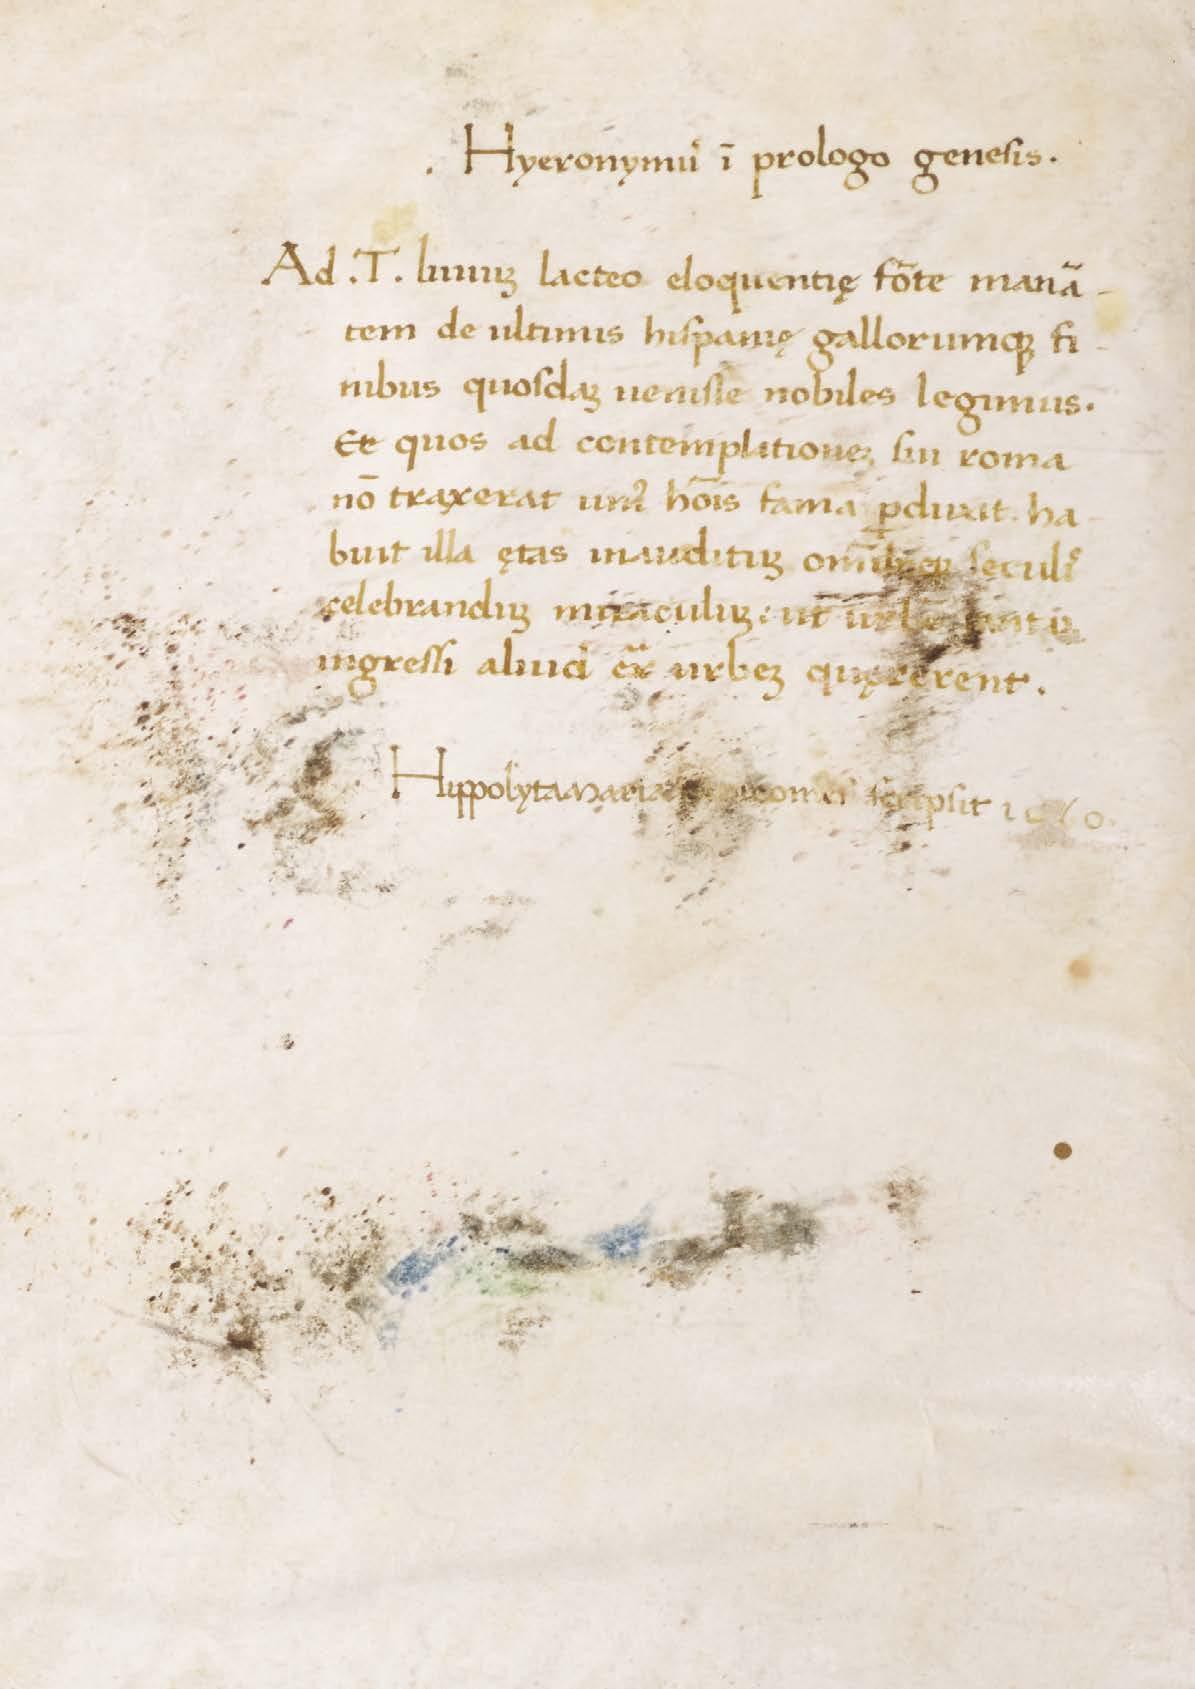 . Hyeronymu᾽ ī prologo genesis.
Ad .T. liuiuꝫ lacteo eloquentię fōte manā-
tem de ultimis hispanię gallorumqꝫ fi-
nibus quosdaꝫ uenisse nobiles legimus.
Et quos ad contemplationeꝫ sui roma
nō traxerat uni᾽ hōis fama pduxit. ha-
buit illa ętas inaudituꝫ omībꝰqꝫ seculis
celebrandiuꝫ miraculuꝫ: ut urbē tantā
ingressi aliud ex᷑ urbeꝫ quęrerent.
Hippolyta Maria scripsit